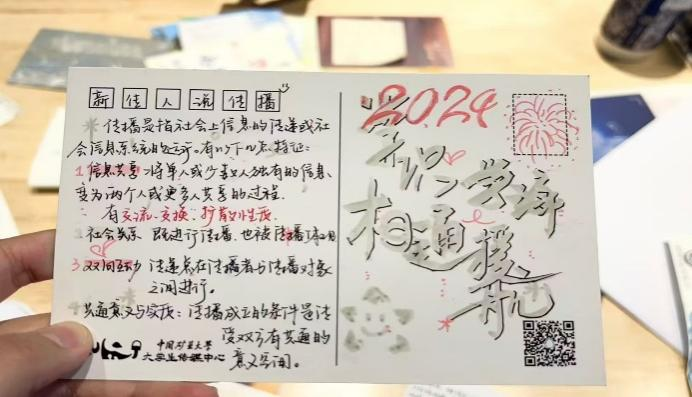 新传人说传播
传播是指社会上信息的传递或社
会信息系统的运行。有以下几点特征:
1 信息共享:将单人或少数人独有的信息,
变为两个人或更多人共享的过程.
有交流、交换、扩散性质
社会关系 既进行传播,也被传播
3 双向互动 传递是在传播者与传播对象
之间进行。
共通意义与空间:传播成立的条件是传
受双方有共通的
意义空间。
中国矿业大学
大学生传媒中心
2024
学海
相逢